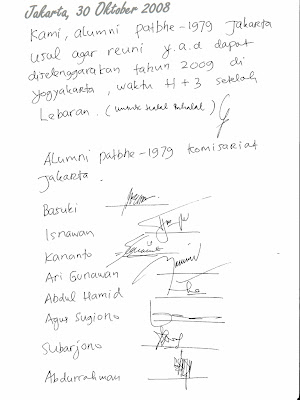 Jakarta, 30 Oktober 2008
Kami, alumni patbhe-1979 Jakarta
usul agar reuni y.a.d dapat
diselenggarakan tahun 2009 di
Yogyakarta, waktu H+3 setelah
Lebaran. (untuk Halal Bihalal)
Alumni patbhe-1979 komisariat
Jakarta.
Basuki
Isnawan
Kananto
Ari Gunawan
Abdul Hamid
Agus Sugiono
Subarjono
Abdurrahman